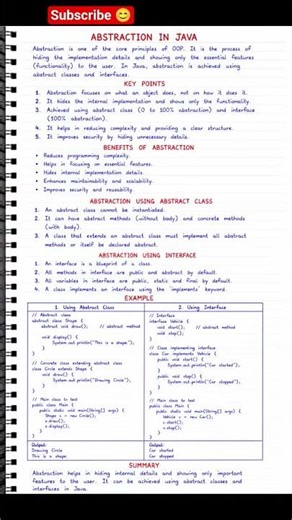 Subscribe 😊
ABSTRACTION IN JAVA
Abstraction is one of the core principles of OOP. It is the process of
hiding the implementation details and showing only the essential features
(functionality) to the user. In Java, abstraction is achieved using
abstract classes and interfaces.
KEY POINTS
1. Abstraction focuses on what an object does, not on how it does it.
2. It hides the internal implementation and shows only the functionality.
3. Achieved using abstract class (0 to 100% abstraction) and interface
(100% abstraction).
4. It helps in reducing complexity and providing a clear structure.
5. It improves security by hiding unnecessary details.
BENEFITS OF ABSTRACTION
• Reduces programming complexity.
• Helps in focusing on essential features.
• Hides internal implementation details.
• Enhances maintainability and scalability.
• Improves security and reusability.
ABSTRACTION USING ABSTRACT CLASS
1. An abstract class cannot be instantiated.
2. It can have abstract methods (without body) and concrete methods
(with body).
3. A class that extends an abstract class must implement all abstract
methods or itself be declared abstract.
ABSTRACTION USING INTERFACE
1. An interface is a blueprint of a class.
2. All methods in interface are public and abstract by default.
3. All variables in interface are public, static and final by default.
4. A class implements an interface using the 'implements' keyword.
EXAMPLE
1. Using Abstract Class
// Abstract class
abstract class Shape {
abstract void draw(); // abstract method
void display() {
System.out.println("This is a shape");
}
}
// Concrete class extending abstract class
class Circle extends Shape {
void draw() {
System.out.println("Drawing Circle");
}
}
// Main class to test
public class Main {
public static void main(String[] args) {
Shape s = new Circle();
s.draw();
s.display();
}
}
Output:
Drawing Circle
This is a shape
2. Using Interface
// Interface
interface Vehicle {
void start(); // abstract method
void stop();
}
// Class implementing interface
class Car implements Vehicle {
public void start() {
System.out.println("Car started");
}
public void stop() {
System.out.println("Car stopped");
}
}
// Main class to test
public class Main {
public static void main(String[] args) {
Vehicle v = new Car();
v.start();
v.stop();
}
}
Output:
Car started
Car stopped
SUMMARY
Abstraction helps in hiding internal details and showing only important
features to the user. It can be achieved using abstract classes and
interfaces in Java.